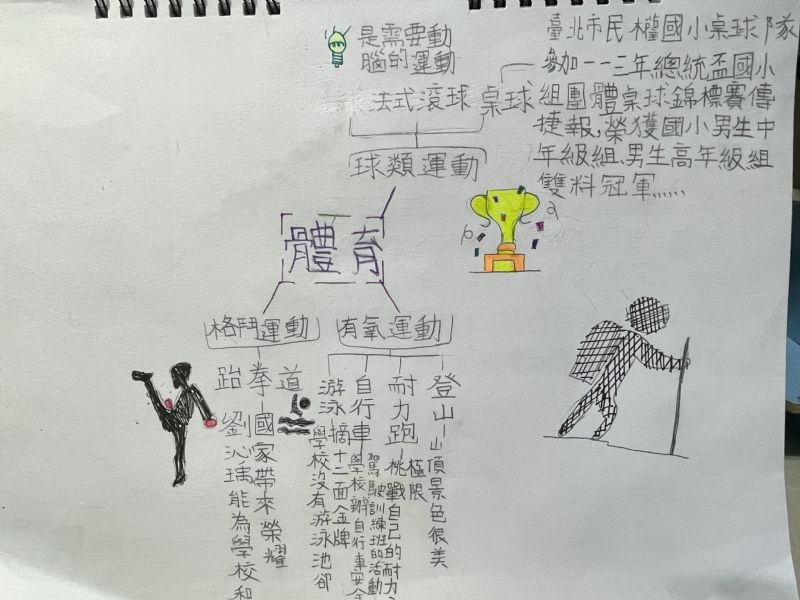 是需要動
腦的運動
法式滾球
桌球
臺北市民權國小桌球隊
參加一一三年總統盃國小
組團體桌球錦標賽傳
捷報,榮獲國小男生中
年級組、男生高年級組
雙料冠軍......
球類運動
體育
格鬥運動
有氧運動
跆拳道
劉沁瑀能為學校和
國家帶來榮耀
游泳
學校沒有游泳池卻
摘十二面金牌
自行車
學校辦自行車安全
駕駛訓練班的活動
耐力跑
挑戰自己的耐力
極限
登山
山頂景色很美